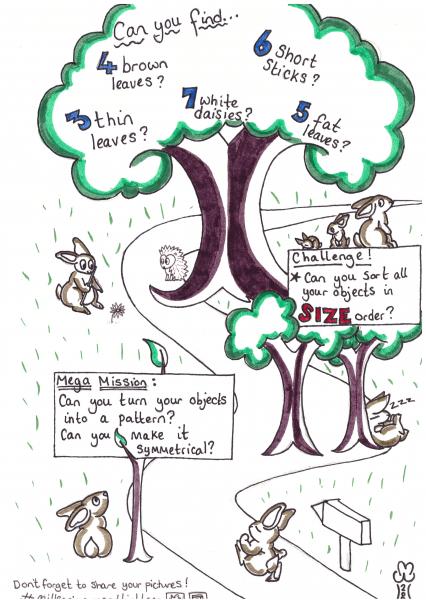 Can you find...
4 brown leaves?
6 Short Sticks?
3 thin leaves?
7 white daisies?
5 fat leaves?
Challenge!
* Can you sort all
your objects in
SIZE order?
Mega Mission:
Can you turn your objects
into a pattern?
Can you make it
symmetrical?
zzz
Don't forget to share your pictures!